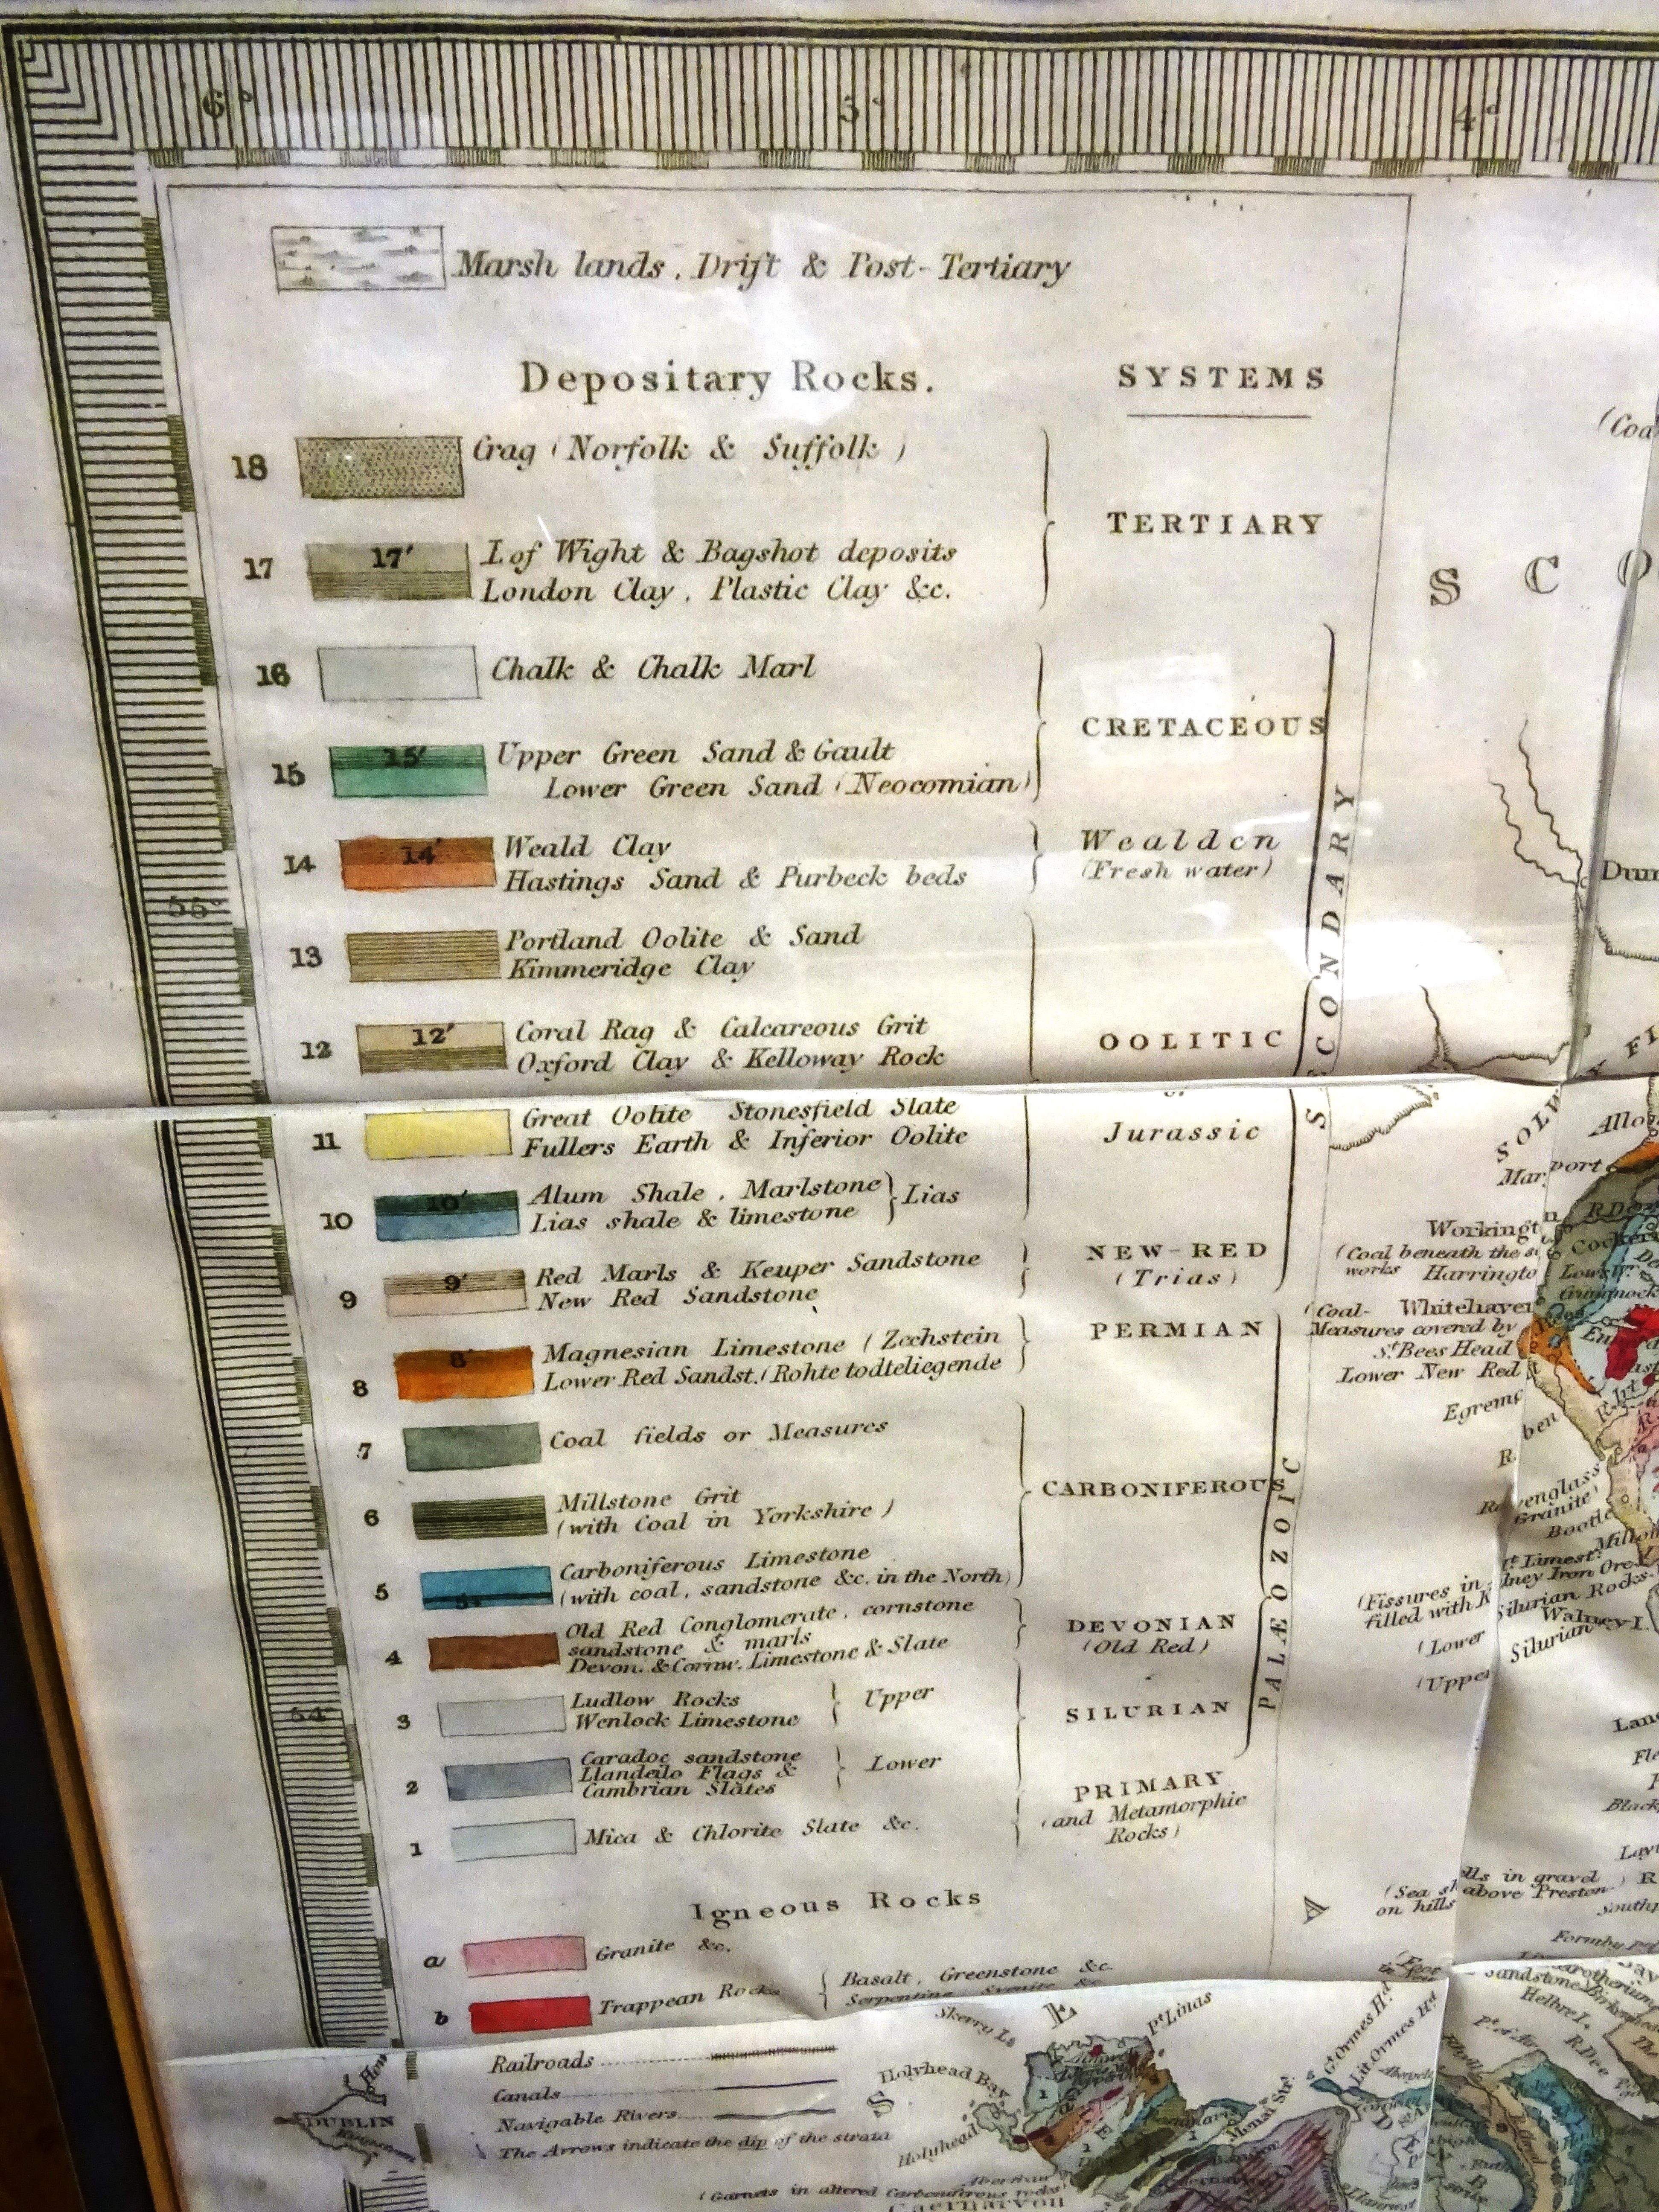 6°
5°
4°
Marsh lands, Drift & Post-Tertiary
Depositary Rocks.
SYSTEMS
18 Crag (Norfolk & Suffolk)
TERTIARY
17 17' I. of Wight & Bagshot deposits
London Clay, Plastic Clay &c.
16 Chalk & Chalk Marl
CRETACEOUS
15 15' Upper Green Sand & Gault
Lower Green Sand (Neocomian)
14 14' Weald Clay
Hastings Sand & Purbeck beds
Wealden
(Fresh water)
SECONDARY
55°
13 Portland Oolite & Sand
Kimmeridge Clay
12 12' Coral Rag & Calcareous Grit
Oxford Clay & Kelloway Rock
OOLITIC
or
Jurassic
11 Great Oolite Stonesfield Slate
Fullers Earth & Inferior Oolite
10 10' Alum Shale, Marlstone
Lias shale & limestone
Lias
9 9' Red Marls & Keuper Sandstone
New Red Sandstone
NEW-RED
(Trias)
8 8' Magnesian Limestone (Zechstein
Lower Red Sandst. (Rohte todteliegende
PERMIAN
7 Coal fields or Measures
6 Millstone Grit
(with Coal in Yorkshire)
CARBONIFEROUS
5 Carboniferous Limestone
(with coal, sandstone &c. in the North)
PALÆOZOIC
4 Old Red Conglomerate, cornstone
sandstone & marls
Devon. & Cornw. Limestone & Slate
DEVONIAN
(Old Red)
54°
3 Ludlow Rocks
Wenlock Limestone
Upper
SILURIAN
2 Caradoc sandstone
Llandeilo Flags &
Cambrian Slates
Lower
1 Mica & Chlorite Slate &c.
PRIMARY
(and Metamorphic
Rocks)
Igneous Rocks
a Granite &c.
b Trappean Rocks
Basalt, Greenstone &c.
Serpentine, Syenite &c.
Railroads
Canals
Navigable Rivers
The Arrows indicate the dip of the strata
DUBLIN
(Garnets in altered Carboniferous rocks)
Caernarvon
Skerry Is.
Holyhead Bay
Holyhead
Pt. Linas
Menai Str.
Gt. Ormes Hd.
Lit. Ormes Hd.
S C O
SOLW
Workingt n
(Coal beneath the
works Harringto
(Coal- Whitehaven
Measures covered by
St. Bees Head
Lower New Red
Egrem
Bootle
(Fissures in
filled with
Silurian Rocks.
Walney I.
(Lower Silurian
(Upper
(Sea sh ells in gravel
on hills above Preston)
Formby
Helbre I.
R. Dee